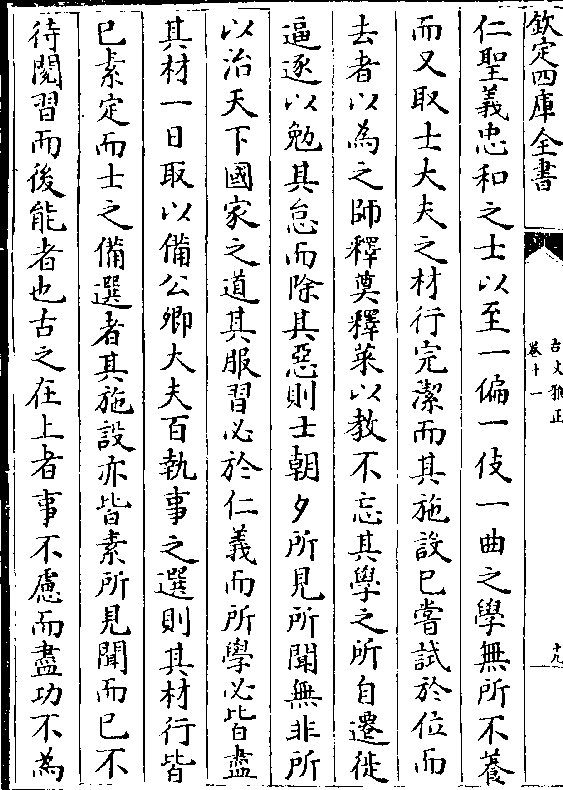 欽定四庫全書
古文雅正
卷十一
十九
仁聖義忠和之士以至一偏一伎一曲之學無所不養
而又取士大夫之材行完潔而其施設已嘗試於位而
去者以為之師釋奠釋菜以教不忘其學之所自遷徙
逼逐以勉其怠而除其惡則士朝夕所見所聞無非所
以治天下國家之道其服習必於仁義而所學必皆盡
其材一日取以備公卿大夫百執事之選則其材行皆
已素定而士之備選者其施設亦皆素所見聞而已不
待閱習而後能者也古之在上者事不慮而盡功不為